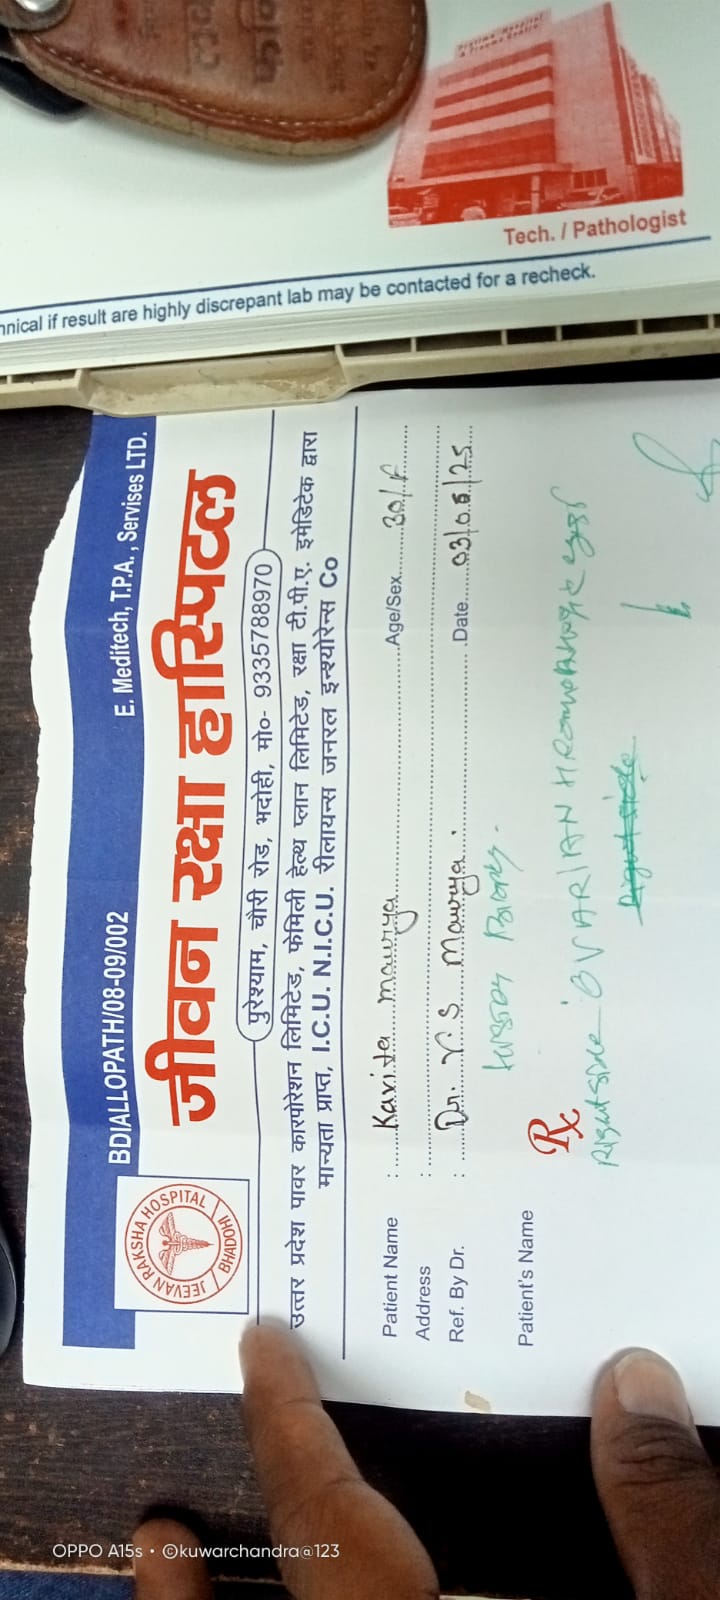 Tech. / Pathologist
hnical if result are highly discrepant lab may be contacted for a recheck.
BDIALLOPATH/08-09/002
E. Meditech, T.P.A., Servises LTD.
JEEVAN RAKSHA HOSPITAL
BHADOHI
जीवन रक्षा हास्पिटल
पुरेश्याम, चौरी रोड, भदोही, मो०- 9335788970
उत्तर प्रदेश पावर कारपोरेशन लिमिटेड, फेमिली हेल्थ प्लान लिमिटेड, रक्षा टी.पी.ए. इमेडिटेक द्वारा
मान्यता प्राप्त, I.C.U. N.I.C.U. रीलायन्स जनरल इन्श्योरेन्स Co
Patient Name : Kavita maurya Age/Sex 30/F
Address :
Ref. By Dr. : Dr. V.S Maurya Date 03/05/25
Patient's Name
Rx
Right side OVARIAN
Right side
OPPO A15s • ©kuwarchandra@123